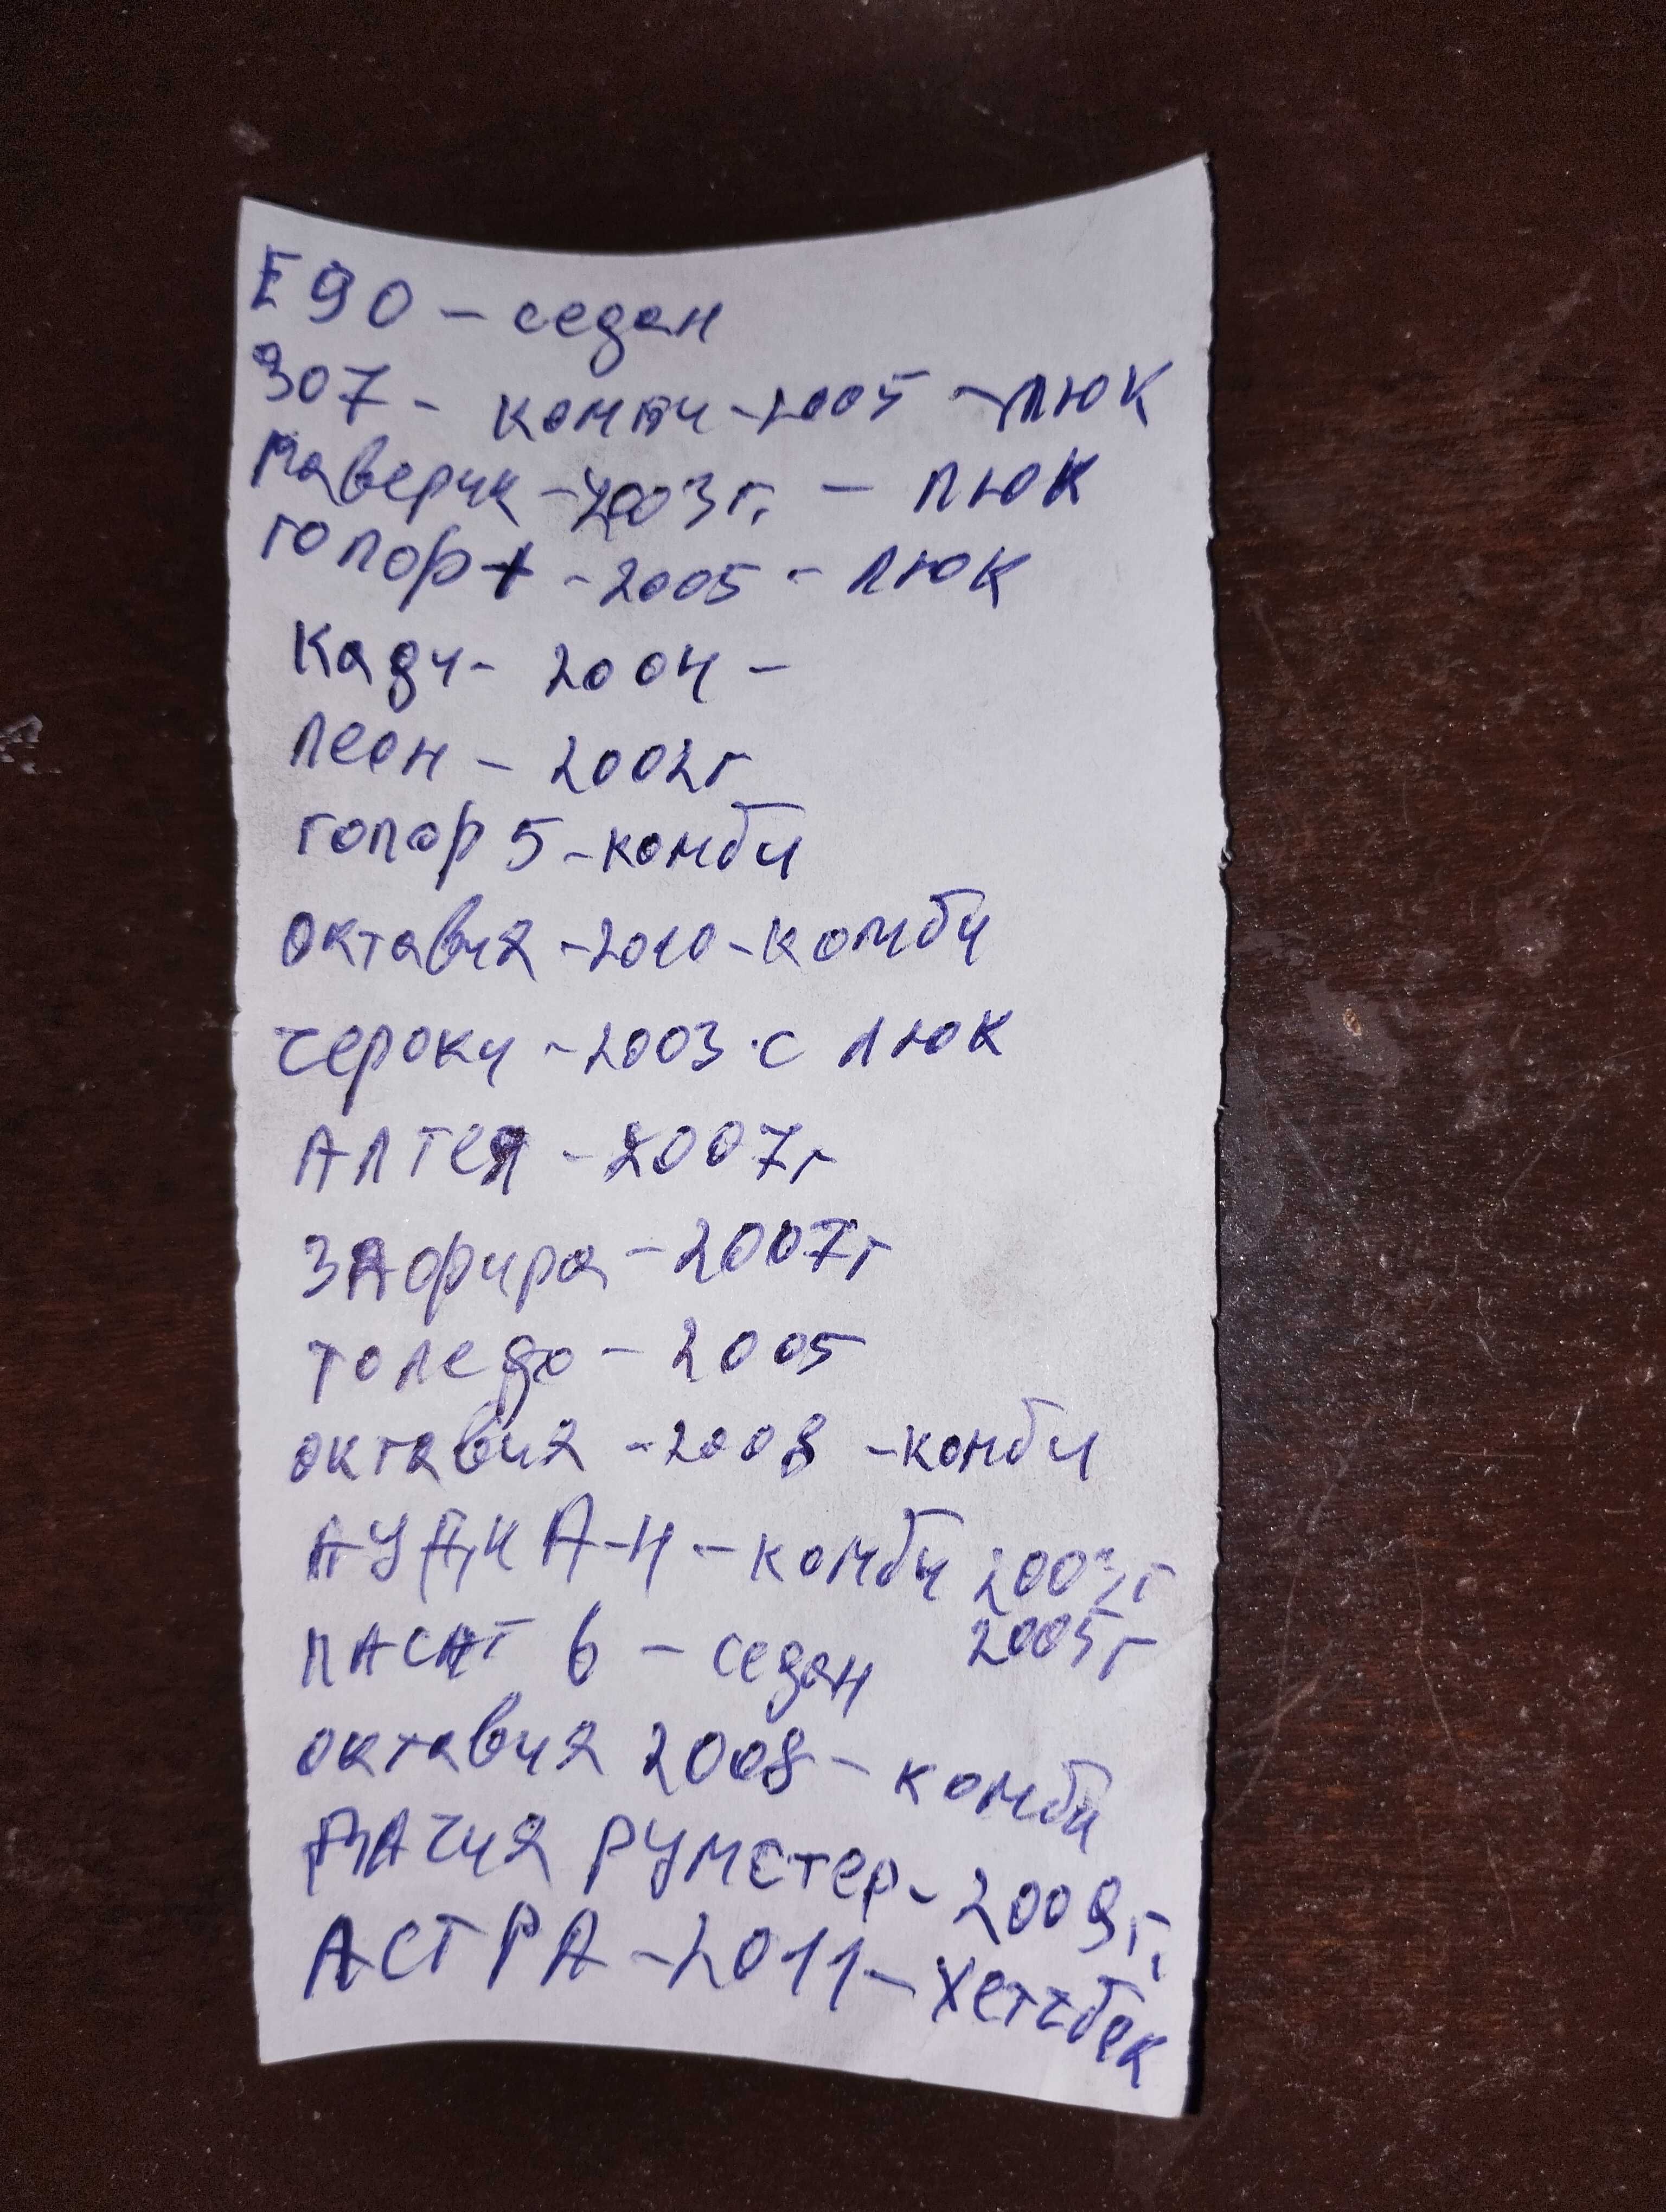 Е90 - седан
307 - комби - 2005 - люк
Маверик - 2003 г. - люк
голф + - 2005 - люк
Кади - 2004 -
Леон - 2002 г
голф 5 - комби
октавия - 2010 - комби
чероки - 2003 · с люк
АЛТЕЯ - 2007 г
ЗАфира - 2007 г
толедо - 2005
октавия - 2008 - комби
АУДИ А-4 - комби 2003 г
ПАСАТ 6 - седан 2005 г
октавия 2008 - комби
ДАЧИЯ РУМСТЕР - 2009 г.
АСТРА - 2011 - Хетчбек